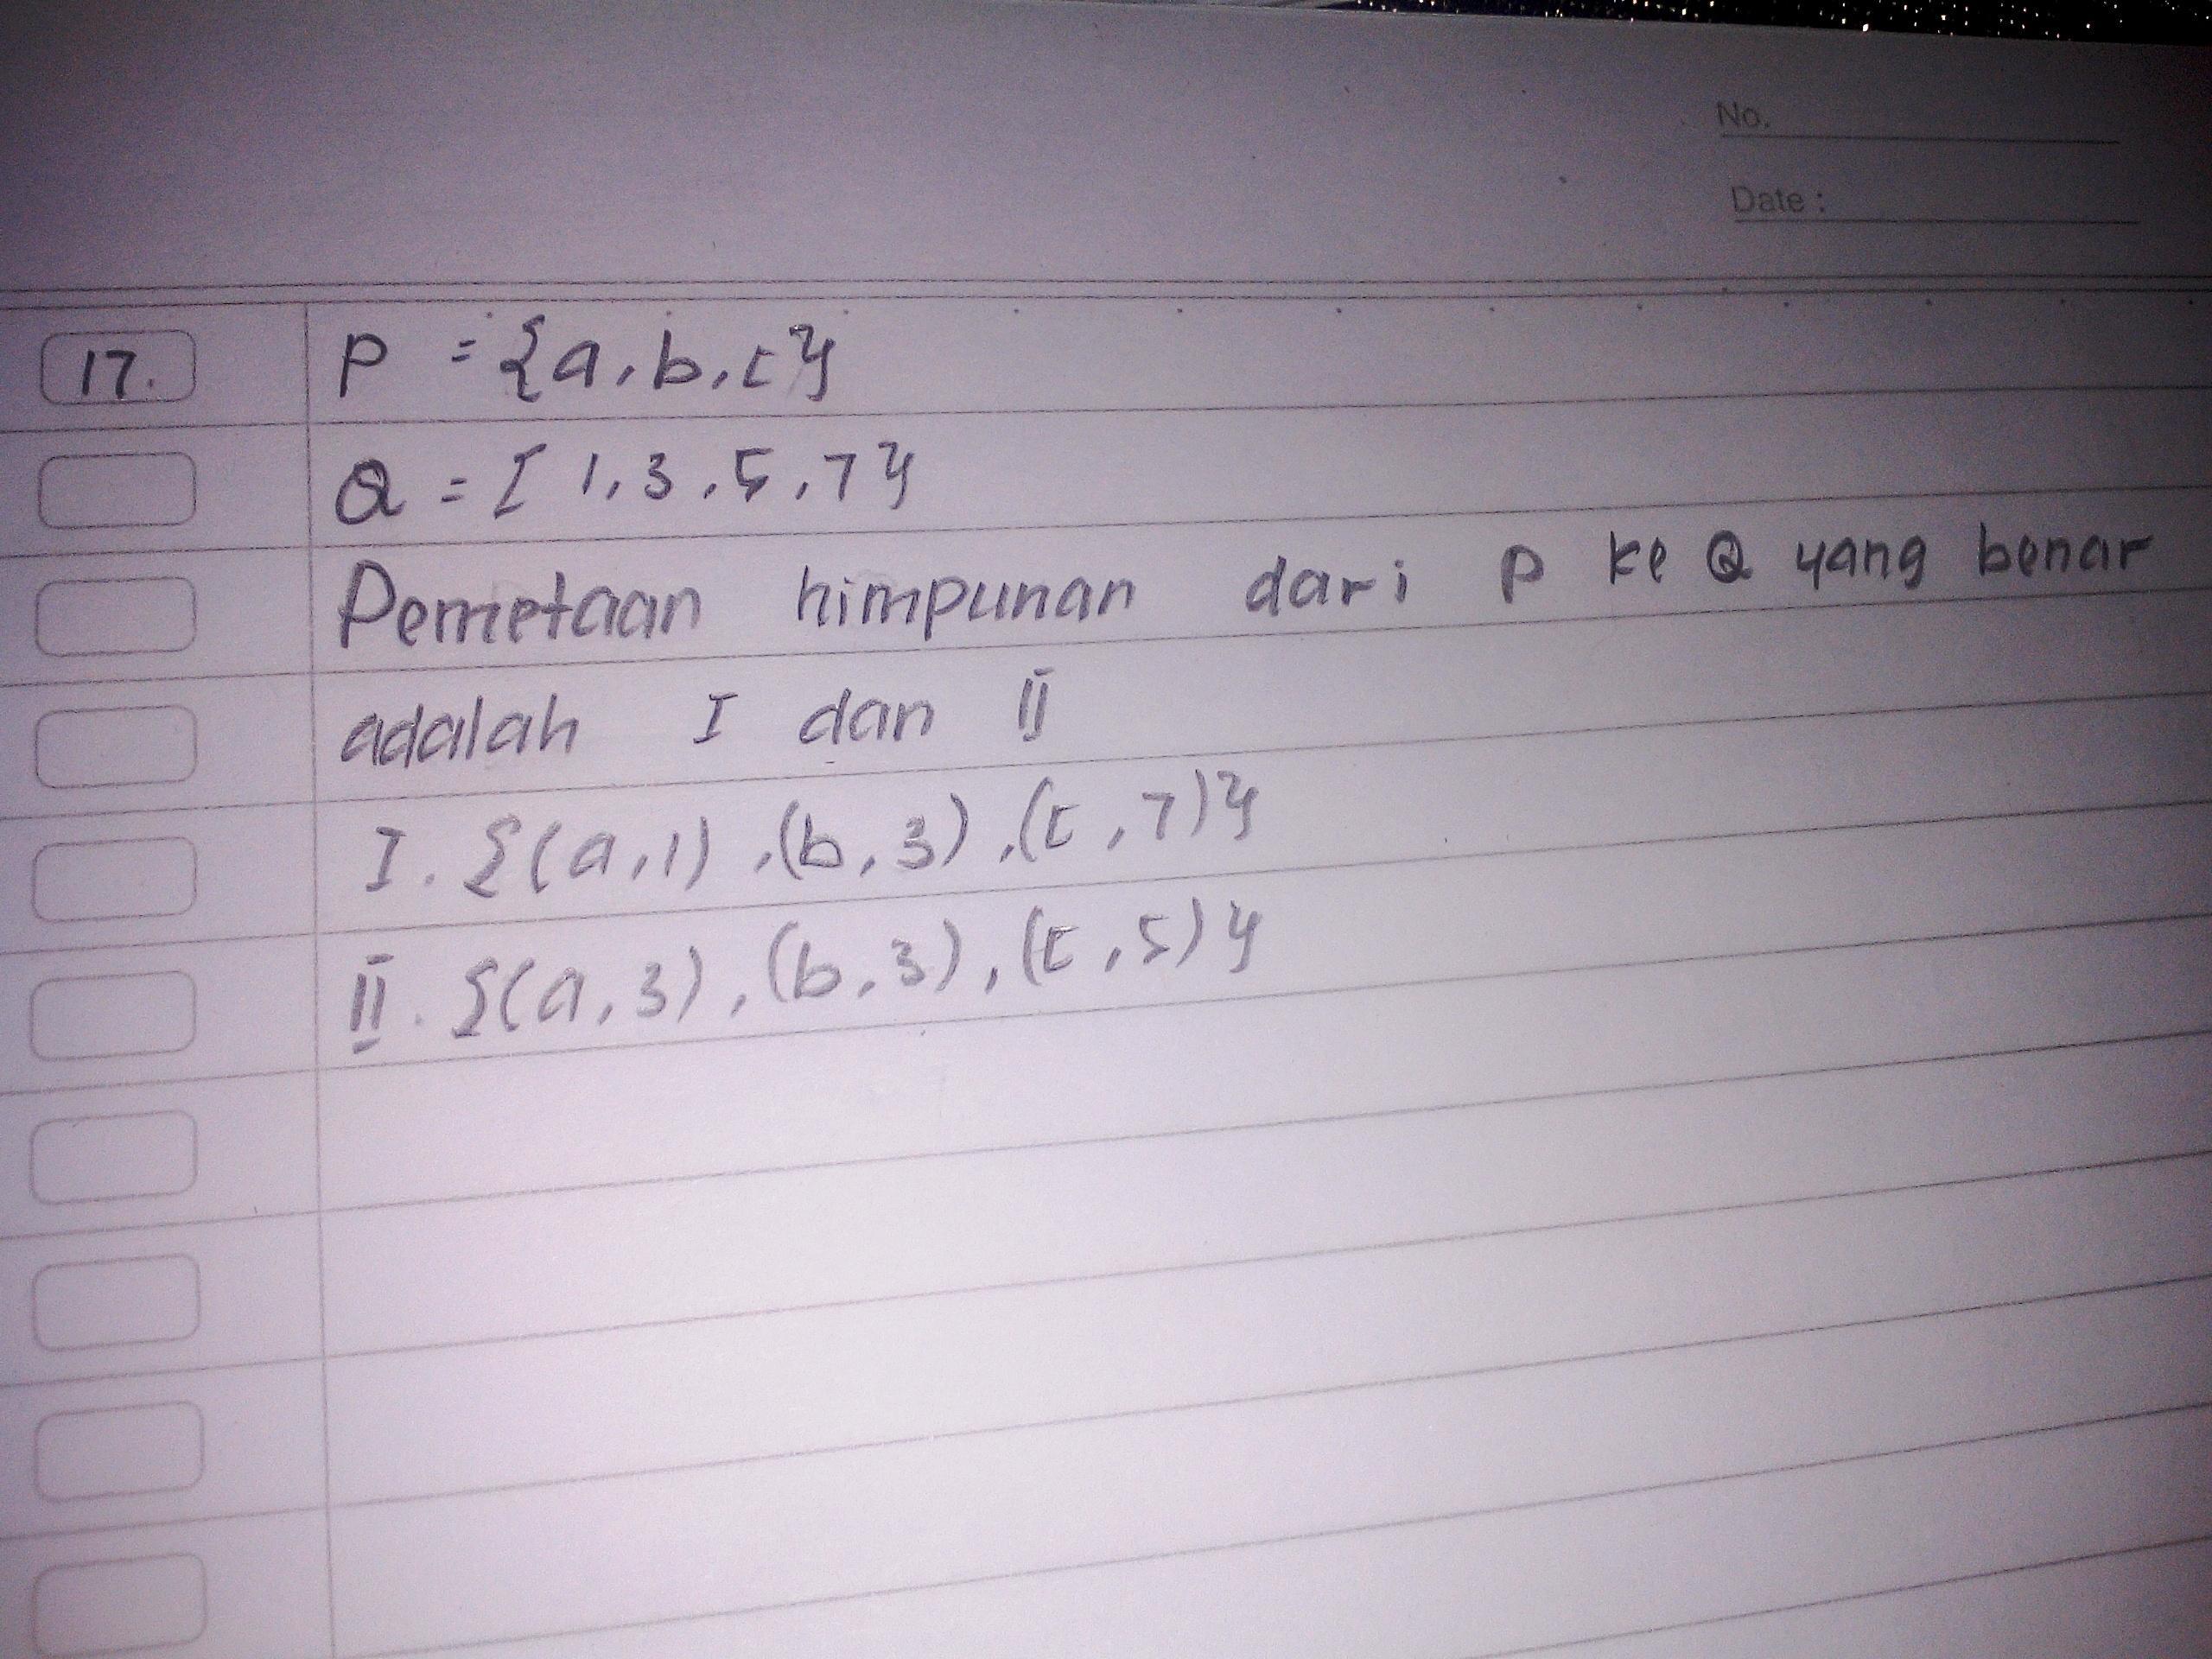 No.
Date :
17. P = {a, b, c}
Q = [ 1, 3, 5, 7 }
Pemetaan himpunan dari P ke Q yang benar
adalah I dan II
I. {(a, 1), (b, 3), (c, 7)}
II. {(a, 3), (b, 3), (c, 5)}